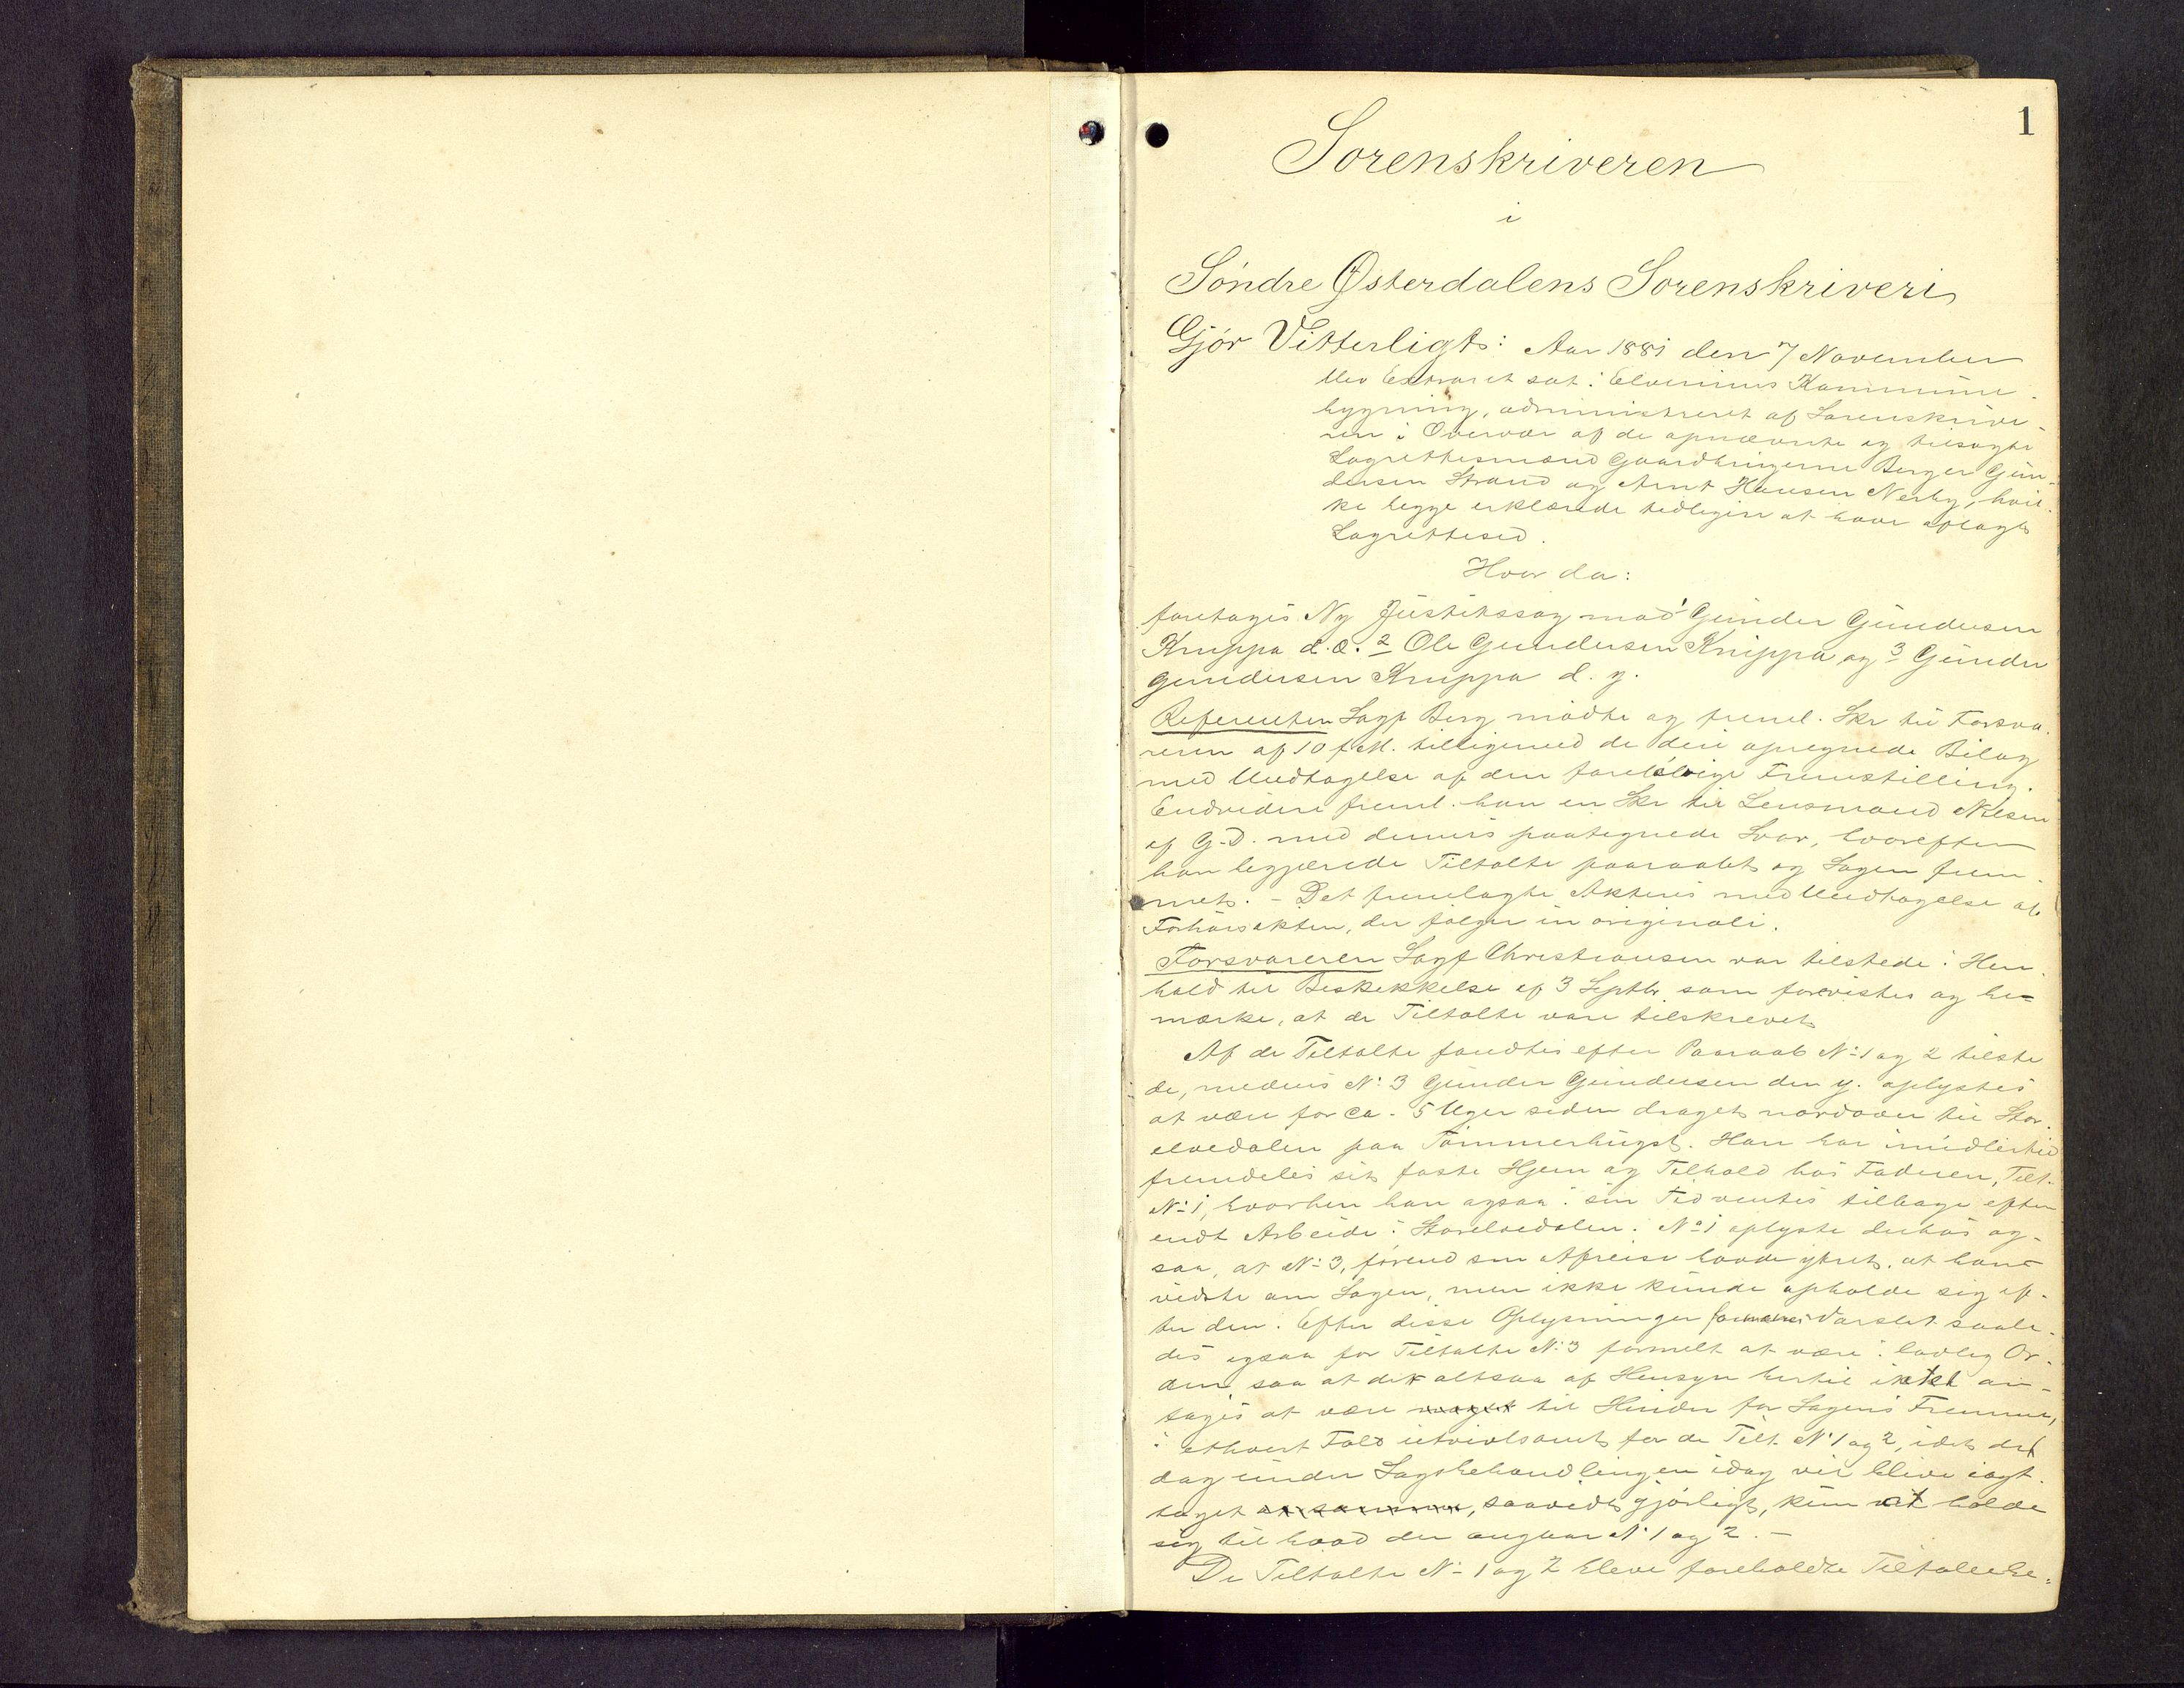 1
Sorenskriveren
i
Søndre Østerdalens Sorenskriveri
Gjør Vitterligt: Aar 1881 den 7 November
blev Extraret sat i Elverums Kommune-
bygning, administreret af Sorenskrive-
ren i Overvær af de opnævnte og tilsagte
Lagrettesmænd Gaardbrugerne Berger Gun-
dersen Strand og Arnt Hansen Nerby, hvil-
ke begge erklærede tidligere at have aflagt
Lagrettesed.
Hvor da:
foretoges Ny Justitssag mod 1 Gunder Gundersen
Kruppa d. æ. 2 Ole Gundersen Kruppa og 3 Gunder
Gundersen Kruppa d. y.
Referenten Sagf Berg mødte og freml. Skr til Forsva-
reren af 10 f. M. tilligemed de deri opregnede Bilag
med Undtagelse af den foreløbige Fremstilling.
Endvidere freml. han en Skr til Lensmand Nilsen
af G. D. med dennes paategnede Svar, hvorefter
han begjærede Tiltalte paaraabt og Sagen frem-
met. - Det fremlagte Akteres med Undtagelse af
Forhørsakten, der følger in originali.
Forsvareren Sagf Christiansen var tilstede i Hen-
hold til Beskikkelse af 3 Septbr. som forevistes og be-
mærke, at de Tiltalte vare tilskrevet
Af de Tiltalte fandtes efter Paaraab No 1 og 2 tilste-
de, medens No 3 Gunder Gundersen den y. oplystes
at være for ca. 5 Uger siden draget nordover til Stor-
elvedalen paa Tømmerhugst. Han har imidlertid
fremdeles sit faste Hjem og Tilhold hos Faderen, Tilt.
No 1, hvorhen han ogsaa i sin Tid ventes tilbage efter
endt Arbeide i Storelvedalen. No 1 oplyste derhos og-
saa, at No 3, førend sin Afreise havde ytret, at han
vidste om Sagen, men ikke kunde opholde sig ef-
ter den. Efter disse Oplysninger Varslet saale-
des ogsaa for Tiltalte No 3 formelt at være i lovlig Or-
den, saa at det altsaa af Hensyn hertil intet an-
toges at være til Hinder for Sagens Fremme,
i ethvert Fald utvivlsomt for de Tilt. No 1 og 2, idet det
dog under Sagsbehandlingen idag vil blive iagt-
taget, saavidt gjørligt, kun at holde
sig til hvad der angaar No 1 og 2. -
De Tiltalte No 1 og 2 bleve foreholdte Tiltalebe-